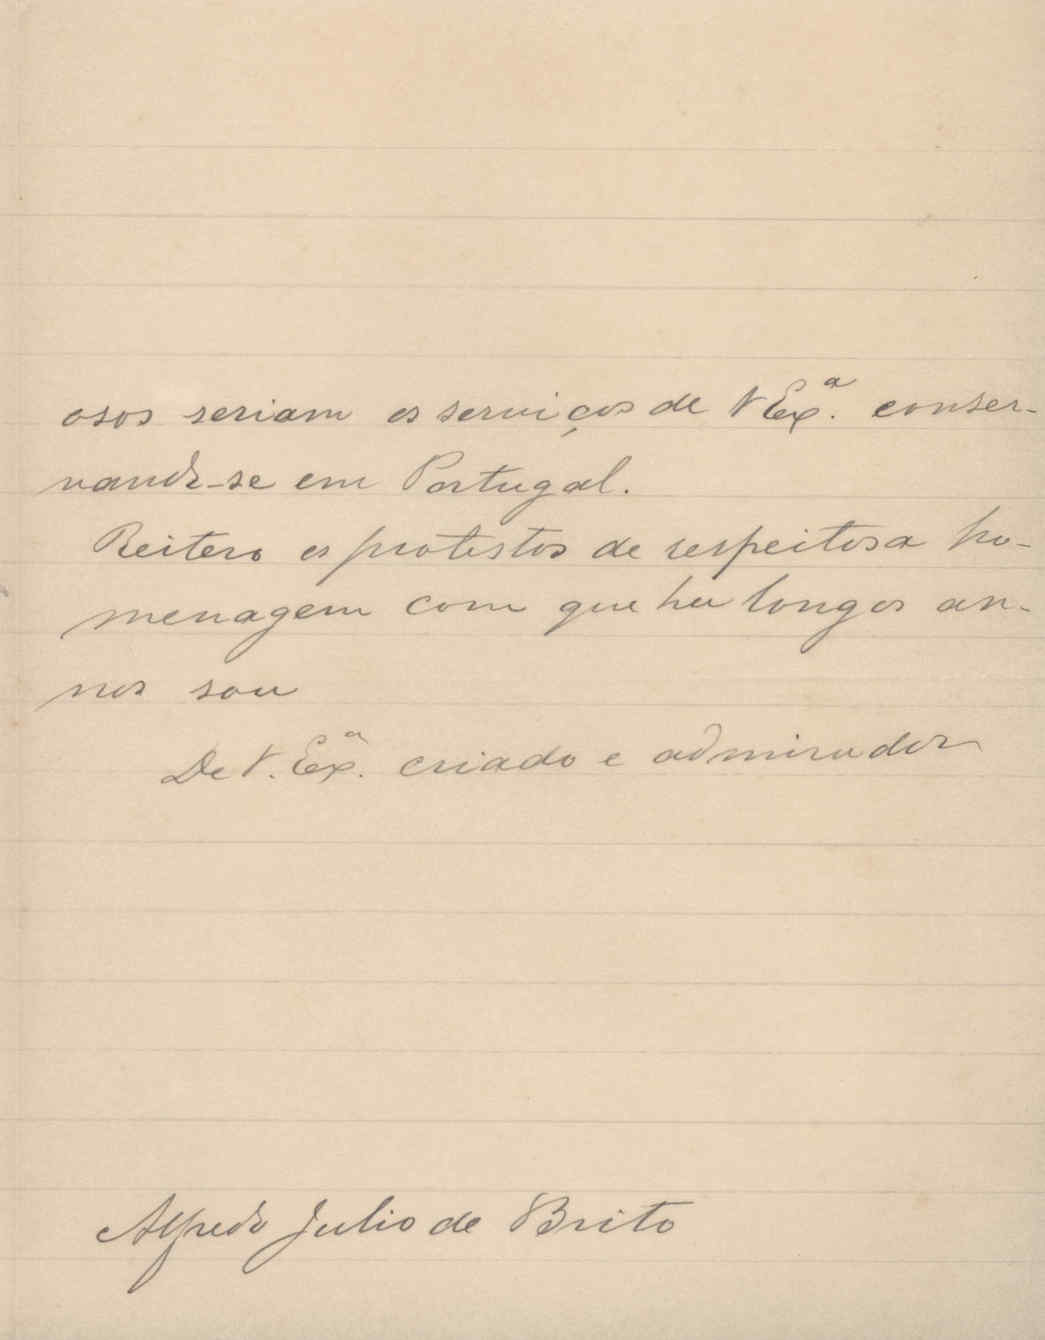 osos seriam os serviços de V Exª. conser-
vando-se em Portugal.
Reitero os protestos de respeitosa ho-
menagem com que ha longos an-
nos sou
De V. Exª. criado e admirador
Alfredo Julio de Brito